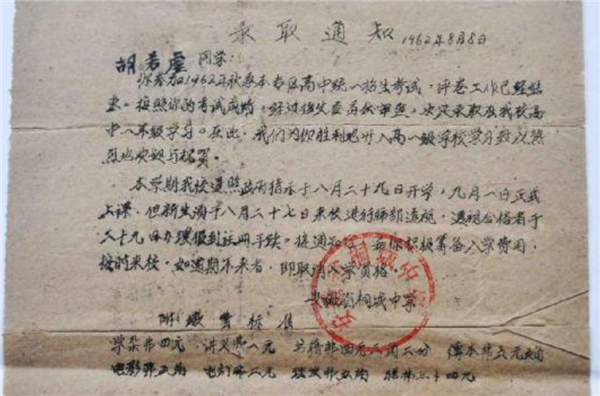 录取通知 1962年8月8日
胡若虚 同学:
你参加1962年秋季本专区高中统一招生考试,评卷工作已经结
束。按照你的考试成绩,经过招生委员会审查,决定录取在我校高
中一年级学习。在此,我们为你胜利地升入高一级学校学习致以热
烈地欢迎与祝贺。
本学期我校遵照上级指示于八月二十九日开学,九月一日正式
上课,但新生须于八月二十七日来校进行 透视,透视合格者于
二十九日办理报到注册手续。接通知后,希你积极筹备入学费用,
按时来校,如逾期不来者,即取消入学资格。
安徽省桐城中学
附缴费标准
学杂费四元 讲义费一元 书籍费四元二角二分 簿本费六元五角
电影费五角 电灯费二元 五角 膳费 四元